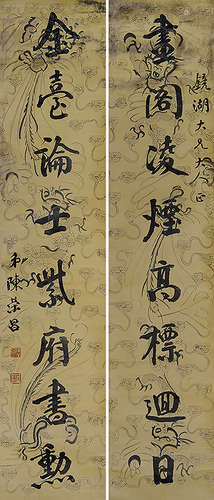 鏡湖大兄大人正
畫閣凌煙高標迴日
金臺論士紫府書勲
弟陳榮昌